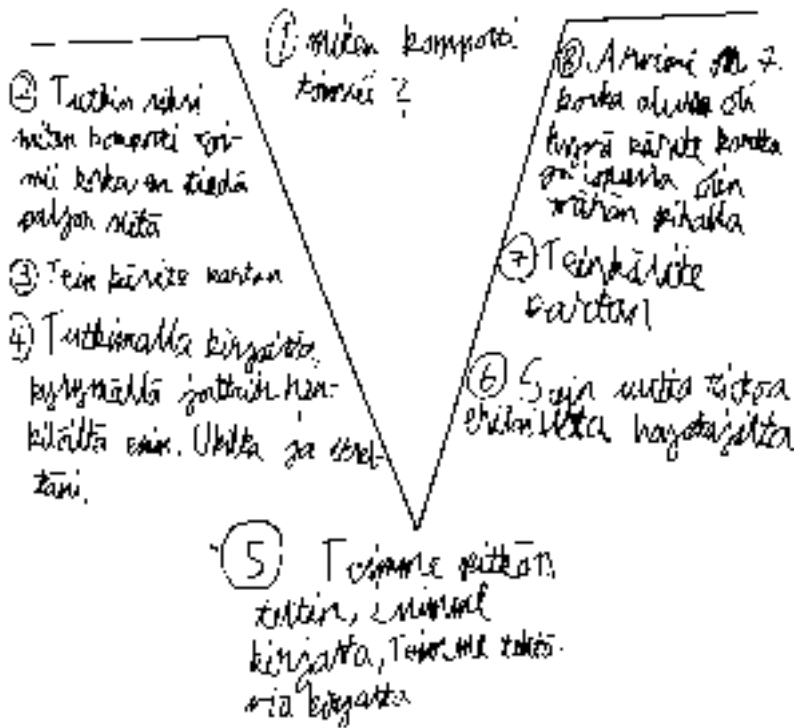 ① miten komposti
toimii?
② Tutkin siksi
miten komposti toi-
mii koska en tiedä
paljon siitä
③ Tein käsite kartan
④ Tutkimalla kirjasta,
kysymällä joltain hen-
kilöltä esim. Ukilta ja
täni.
⑤ Teimme pitkän
kirjasta, Teimme
kirjasta
⑥ Sain uutta tietoa
erilaisista hajottajista
⑦ Tein käsite
kartan
⑧ Arvioni on 7.
koska alussa oli
hyvä käsite kartta
ja lopussa olin
vähän pihalla